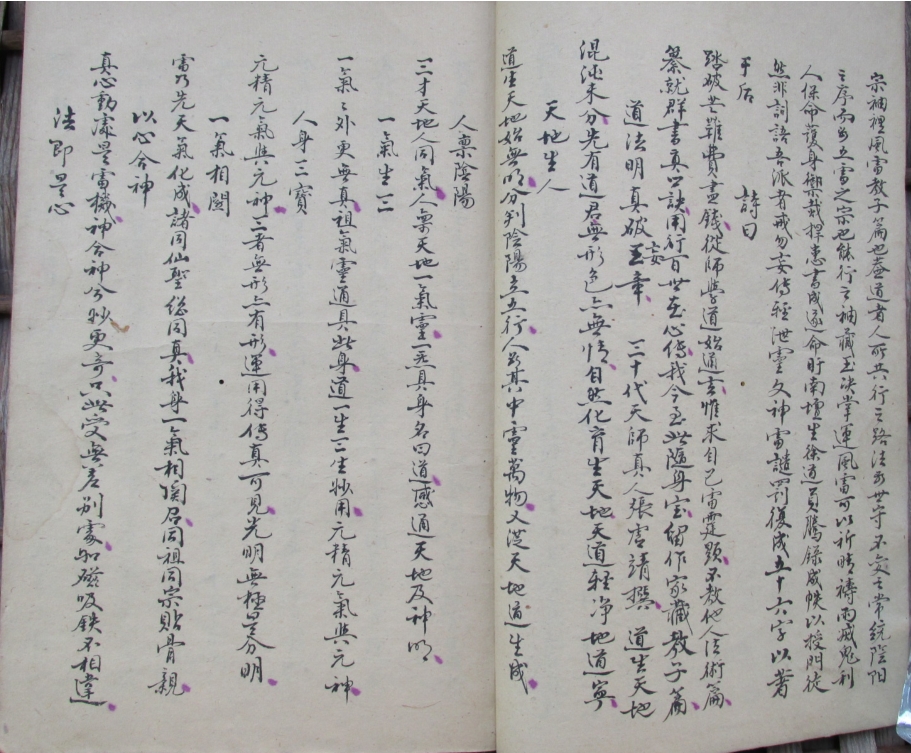 宗袖裡風雷教子篇也蓋道者人所共行之路法乃世守不变之常統陰阳
之序而为五雷之宗也能行之袖藏玉决掌運風雷可以祈晴祷雨威鬼利
人保命護身禦災捍患書成遂命时南壇生徐道員騰錄成帙以授門徒
然非訶語吾派者戒勿妄传轻泄灵文神雷譴罰復成五十六字以著
于后 詩曰
踏破芒鞋費尽錢從師學道始通玄惟求自己雷霆顕不教他人法術篇
纂就群書真口訣用行百世至心传我今至此隨身宝留作家藏教子篇
道法明真破妄章 三十代天師真人張虚靖撰 道生天地
混沌未分先有道君無形色亦無情自然化育生天地天道轻净地道寧
天地生人
道生天地始無明分判陰陽立五行人於其中靈萬物又從天地道生成
人禀陰陽
三才天地人同氣人禀天地一氣靈一炁具身名曰道感通天地及神明
一氣生三
一氣之外更無真祖氣靈通具此身道一生三三生妙用元精元氣與元神
人身三宝
元精元氣與元神三者無形亦有形運用得传真可見光明無極是分明
一氣相関
雷乃先天一氣化成諸同仙聖総同真我身一氣相関召同祖同宗贴骨親
以心合神
真心動處是雷機神合神兮妙更奇只此受與差別處如磁吸鉄不相違
法即是心